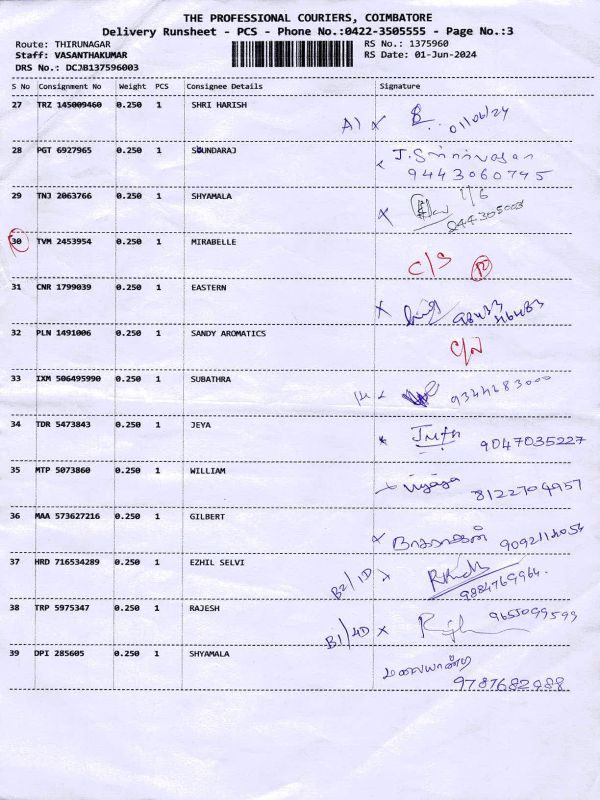 THE PROFESSIONAL COURIERS, COIMBATORE
Delivery Runsheet - PCS - Phone No.:0422-3505555 - Page No.:3
Route: THIRUNAGAR RS No.: 1375960
Staff: VASANTHAKUMAR RS Date: 01-Jun-2024
DRS No.: DCJB137596003
S No Consignment No Weight PCS Consignee Details Signature
27 TRZ 145009460 0.250 1 SHRI HARISH
A1 x 01/06/24
28 PGT 6927965 0.250 1 SOUNDARAJ J. Srinivasan
9443060745
29 TNJ 2063766 0.250 1 SHYAMALA 1/6
x
30 TVM 2453954 0.250 1 MIRABELLE
C/S
31 CNR 1799039 0.250 1 EASTERN
x
32 PLN 1491006 0.250 1 SANDY AROMATICS
33 IXM 506495990 0.250 1 SUBATHRA
9344283000
34 TDR 5473843 0.250 1 JEYA
9047035227
35 MTP 5073860 0.250 1 WILLIAM
x Vijaya 8122704957
36 MAA 573627216 0.250 1 GILBERT
x
37 HRD 716534289 0.250 1 EZHIL SELVI
B2/1D x 9884769964.
38 TRP 5975347 0.250 1 RAJESH 9655099599
B1/4D x
39 DPI 285605 0.250 1 SHYAMALA மலையாண்டி
9787682988